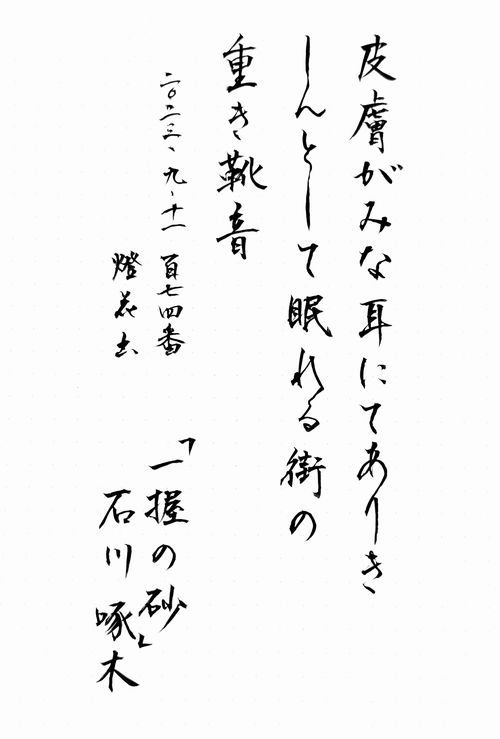 皮膚がみな耳にてありき
しんとして眠れる街の
重き靴音
二〇二三、九、十一　百七四番
燈花生
「一握の砂」
石川啄木